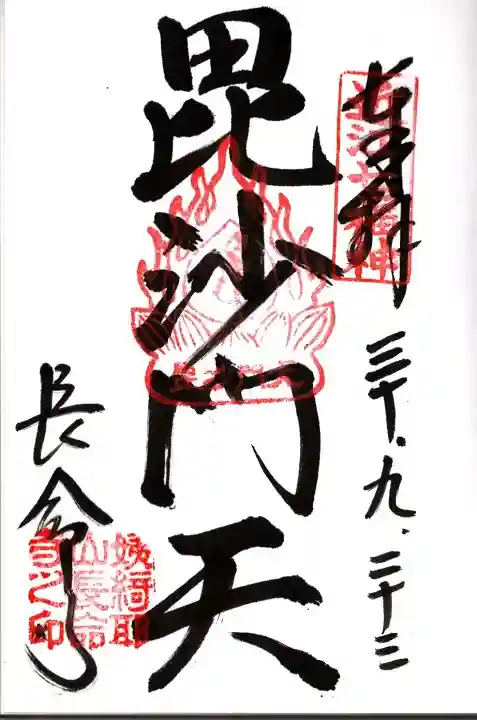 奉拝
近江七福神
三十.九.二十三
毘沙門天
長命寺
姨綺耶
山長命
寺之印